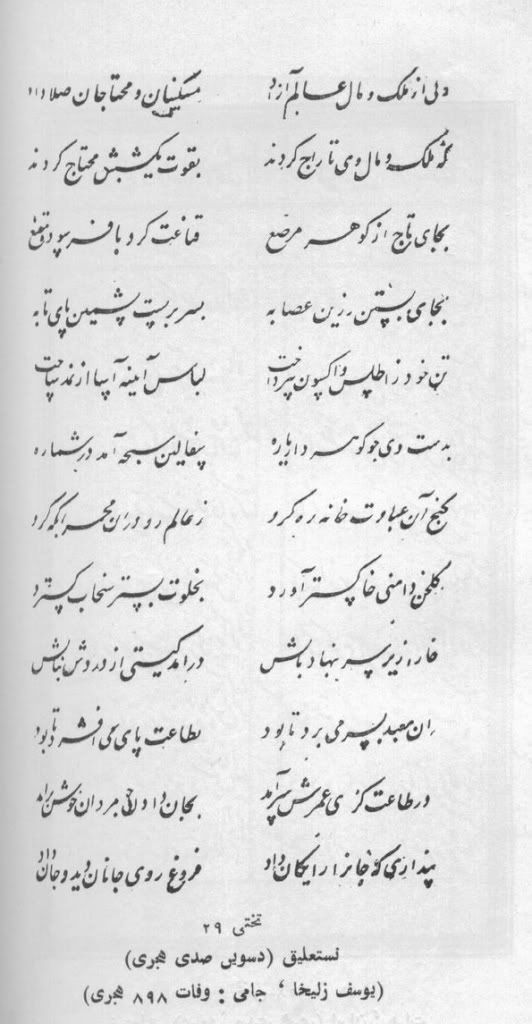 دلی از ملک و مال عالم آزاد مسکینان و محتاجان صلا داد
که ملک و مال وی تاراج کردند بقوت یکشبش محتاج کردند
بجای تاج از گوهر مرصع قناعت کرد با فرسوده مقنع
بجای بستن زرین عصابه بسر بربست پشمین پای تابه
تن خود ز اطلس و اکسون بپرداخت لباس آیینه آسا از نمد ساخت
بدست وی چو گوهر دار یاره سفالین سبحه آمد در شماره
بکنج آن عبادت خانه ره کرد ز عالم رو در آن محرابگه کرد
گلخن دامنی خاکستر آورد بخلوت بستر سنجاب گسترد
خارا زیر سر بنهاد بالش درآمد گیتی از دردش بنالش
ان معبد بسر می برد تا بود بطاعت پای می افشرد تا بود
در طاعت گری عمرش سرآمد بجان دادن چو مردان خوش برآمد
پنداری که جانرا رایگان داد فروغ روی جانان دید و جان داد
تختی ۲۹
نستعلیق (دسویں صدی ہجری)
(یوسف زلیخا ، جامی : وفات ۸۹۸ ہجری)